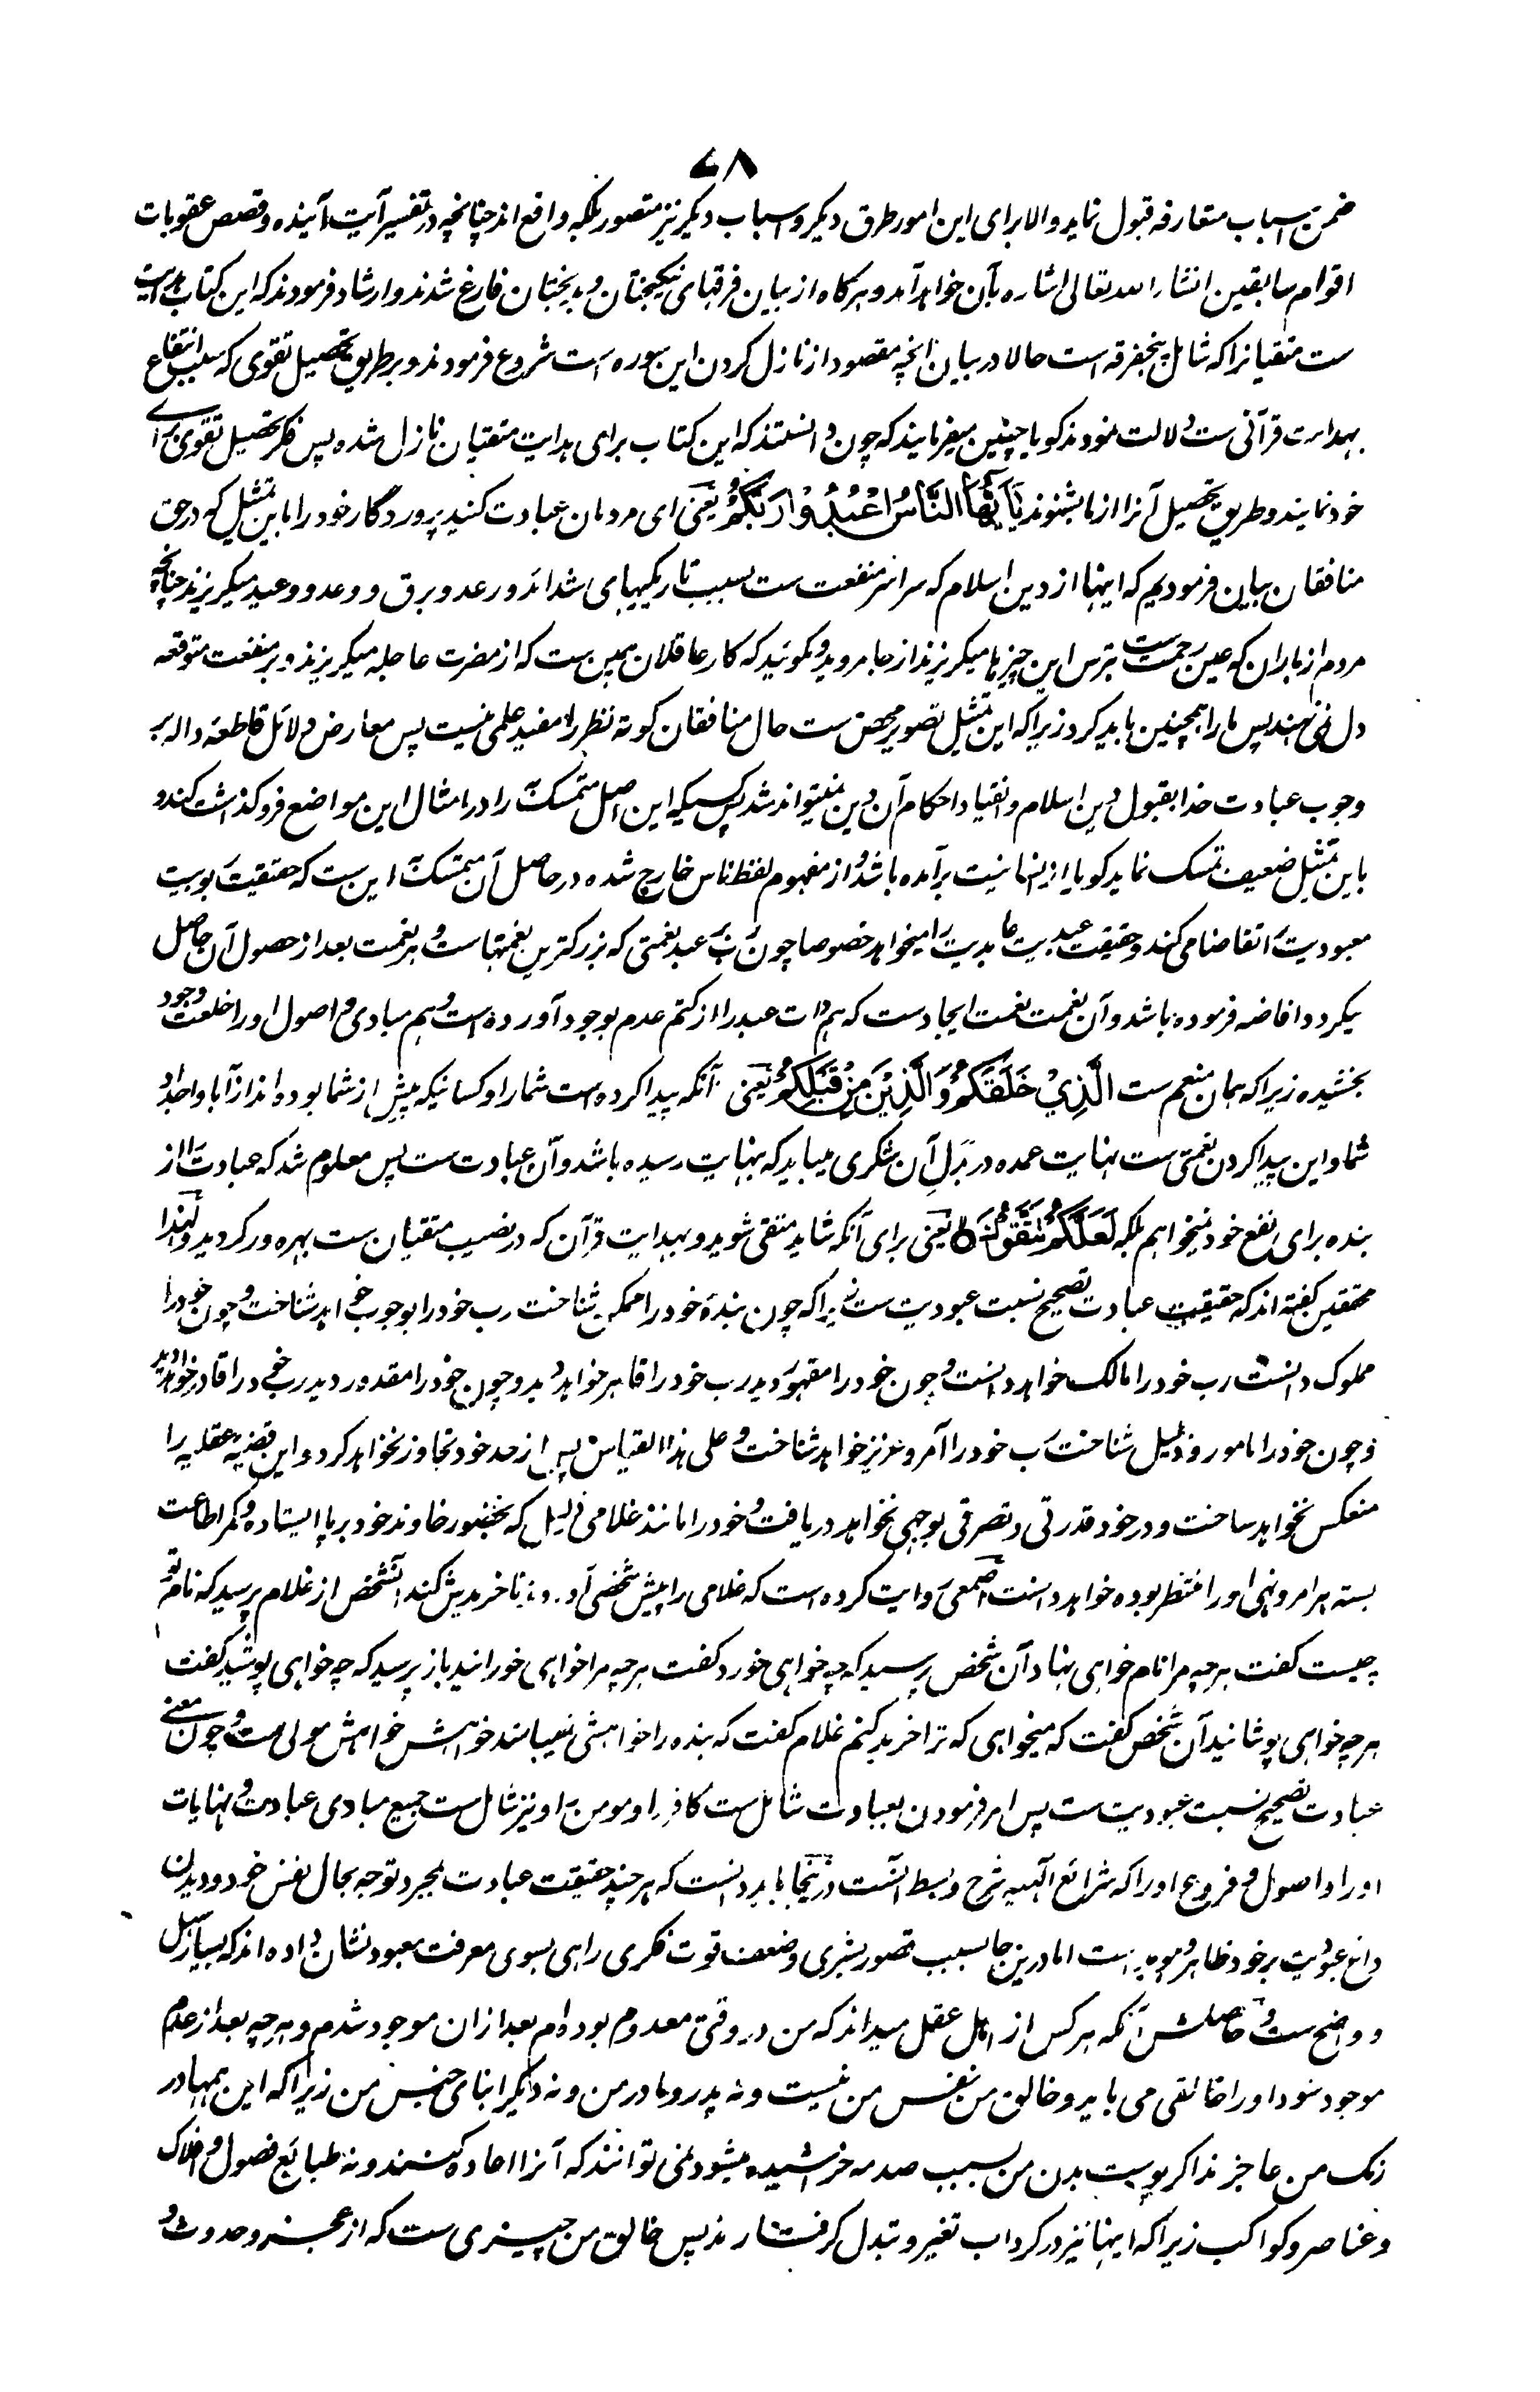 ۷۸
ضمن اسباب متعارفه قبول نماید والا برای این امور طرق دیگر و اسباب دیگر نیز متصور بلکه واقع اند چنانچه در تفسیر آیت آینده و قصص عقوبات
اقوام سابقین انشاء الله تعالی اشاره بآن خواهد آمد و هرگاه از بیان فرقهای نیکبختان و بدبختان فارغ شدند و ارشاد فرمودند که این کتاب هدایت
ست متقیانرا که شامل پنجفرقه است حالا در بیان آنچه مقصود از نازل کردن این سوره است شروع فرمودند و بر طریق تحصیل تقوی که سبب انتفاع
بهدایت قرآنی ست دلالت نمودند گویا چنین میفرمایند که چون دانستند که این کتاب برای هدایت متقیان نازل شده پس فکر تحصیل تقوی برای
خود نمایند و طریق تحصیل آنرا از ما بشنوند یٰٓاَیُّهَا النَّاسُ اعْبُدُوْا رَبَّكُمُ یعنی ای مردمان عبادت کنید پروردگار خود را باین تمثیل که در حق
منافقان بیان فرمودیم که اینها از دین اسلام که سراسر منفعت ست بسبب تاریکیهای شدائد و رعد و برق و وعد و وعید میگریزند چنانچه
مردم از باران که عین رحمت ست بترس این چیزها میگریزند از جا مروید و مگوئید که کار عاقلان همین ست که از مضرت عاجله میگریزند و بر منفعت متوقعه
دل نمی نهند پس ما را همچنین باید کرد زیرا که این تمثیل تصویر محض ست حال منافقان کوته نظر را مفید علمی نیست پس معارض دلائل قاطعه داله بر
وجوب عبادت خدا بقبول دین اسلام و انقیاد احکام آن دین نمیتواند شد پس کسیکه این اصل متمسک را در امثال این مواضع فروگذاشت کند و
باین تمثیل ضعیف تمسک نماید گویا از انسانیت برآمده باشد و از مفهوم لفظ ناس خارج شده در حاصل آن متمسک این ست که حقیقت ربوبیت
معبودیت را تقاضا می کند و حقیقت عبدیت عابدیت را میخواهد خصوصا چون رب بر عبد نعمتی که بزرگترین نعمتها است و هر نعمت بعد از حصول آن حاصل
میگردد افاضه فرموده باشد و آن نعمت نعمت ایجاد ست که هم ذات عبد را از کتم عدم بوجود آورده است و هم مبادی و اصول او را خلعت وجود
بخشیده زیرا که همان منعم ست الَّذِيْ خَلَقَكُمْ وَالَّذِيْنَ مِنْ قَبْلِكُمْ یعنی آنکه پیدا کرده است شما را و کسانیکه پیش از شما بوده اند از آبا و اجداد
شما و این پیدا کردن نعمتی ست نهایت عمده در بدل آن شکری میباید که بنهایت رسیده باشد و آن عبادت ست پس معلوم شد که عبادت را از
بنده برای نفع خود نمیخواهم بلکه لَعَلَّكُمْ تَتَّقُوْنَ یعنی برای آنکه شاید متقی شوید و بهدایت قرآن که در نصیب متقیان ست بهره ور گردید و لهذا
محققین گفته اند که حقیقت عبادت تصحیح نسبت عبودیت ست زیرا که چون بنده خود را ممکن شناخت رب خود را بوجوب خواهد شناخت و چون خود را
مملوک دانست رب خود را مالک خواهد دانست و چون خود را مقهور دید رب خود را قاهر خواهد دید و چون خود را مقدور دید رب خود را قادر خواهد دید
و چون خود را مامور و ذلیل شناخت رب خود را آمر و عزیز خواهد شناخت و علی هذا القیاس پس از حد خود تجاوز نخواهد کرد و این قضیه عقلیه را
منعکس نخواهد ساخت و در خود قدرتی و تصرفی بوجهی نخواهد دریافت و خود را مانند غلامی ذلیل که بحضور خاوند خود بر پا ایستاده و کمر اطاعت
بسته هر امر و نهی او را منتظر بوده خواهد دانست اصمعی روایت کرده است که غلامی را پیش شخصی آوردند تا خریدش کند آنشخص از غلام پرسید که نام تو
چیست گفت هر چه مرا نام خواهی نهاد آن شخص پرسید که چه خواهی خورد گفت هر چه مرا خواهی خورانید باز پرسید که چه خواهی پوشید گفت
هر چه خواهی پوشانید آن شخص گفت که میخواهی که ترا خرید کنم غلام گفت که بنده را خواهشی نمیباشد خواهش خواهش مولی ست و چون معنی
عبادت تصحیح نسبت عبودیت ست پس امر فرمودن بعبادت شامل ست کافر را و مومن را و نیز شامل ست جمیع مبادی عبادت و نهایات
او را و اصول و فروع او را که شرائع الهیه شرح و بسط آنست درینجا باید دانست که هر چند حقیقت عبادت بمجرد توجه بحال نفس خود و دیدن
داغ عبودیت بر خود ظاهر و هویدا است اما درین جا بسبب قصور بشری و ضعف قوت فکری راهی بسوی معرفت معبود نشان داده اند که بسیار سهل
و واضح ست و حاصلش آنکه هر کس از اهل عقل میداند که من در وقتی معدوم بوده ام بعد ازان موجود شدم و هر چه بعد از عدم
موجود شود او را خالقی می باید و خالق من نفس من نیست و نه پدر و مادر من و نه دیگر ابنای جنس من زیرا که این همها در
رنگ من عاجزند اگر پوست بدن من بسبب صدمه خراشیده میشود نمی توانند که آنرا اعاده کنند و نه طبائع فصول و افلاک
و عناصر و کواکب زیرا که اینها نیز در گرداب تغیر و تبدل گرفتارند پس خالق من چیزی ست که از عجز و حدوث و